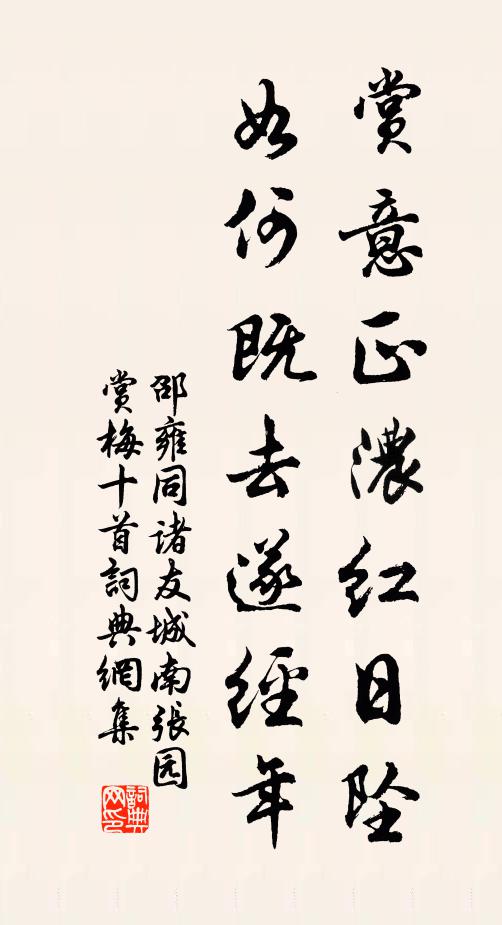 赏意正濃红日坠
如何既去遂經年
邵雍同诸友城南張园
赏梅十首詞典網集
詞典网印